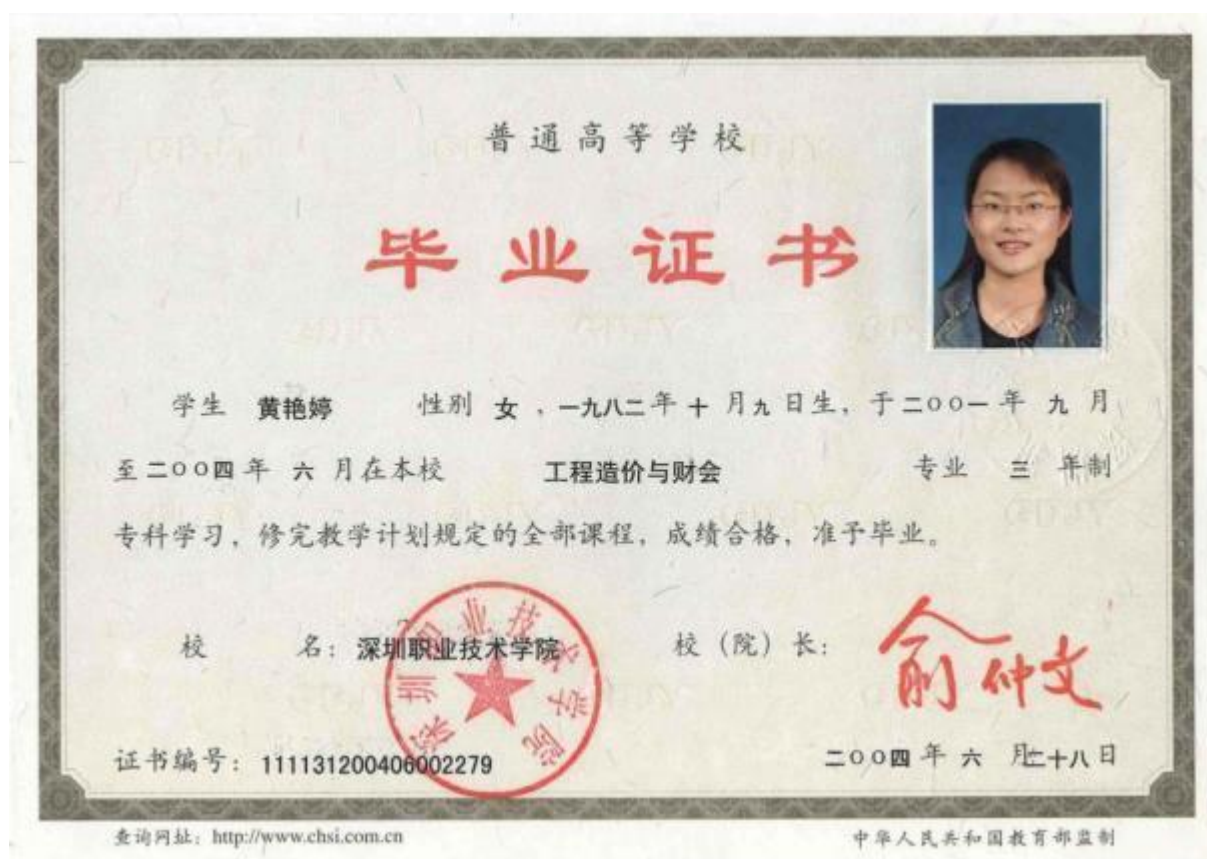 普通高等学校
毕业证书
学生 黄艳婷 性别 女 ，一九八二年 十 月九 日生，于二〇〇一年 九 月
至二〇〇四年 六 月在本校 工程造价与财会 专业 三 年制
专科学习，修完教学计划规定的全部课程，成绩合格，准予毕业。
校 名：深圳职业技术学院 校（院）长：俞仲文
深圳职业技术学院
证书编号：111131200406002279 二〇〇四年 六 月二十八日
查询网址：http://www.chsi.com.cn 中华人民共和国教育部监制